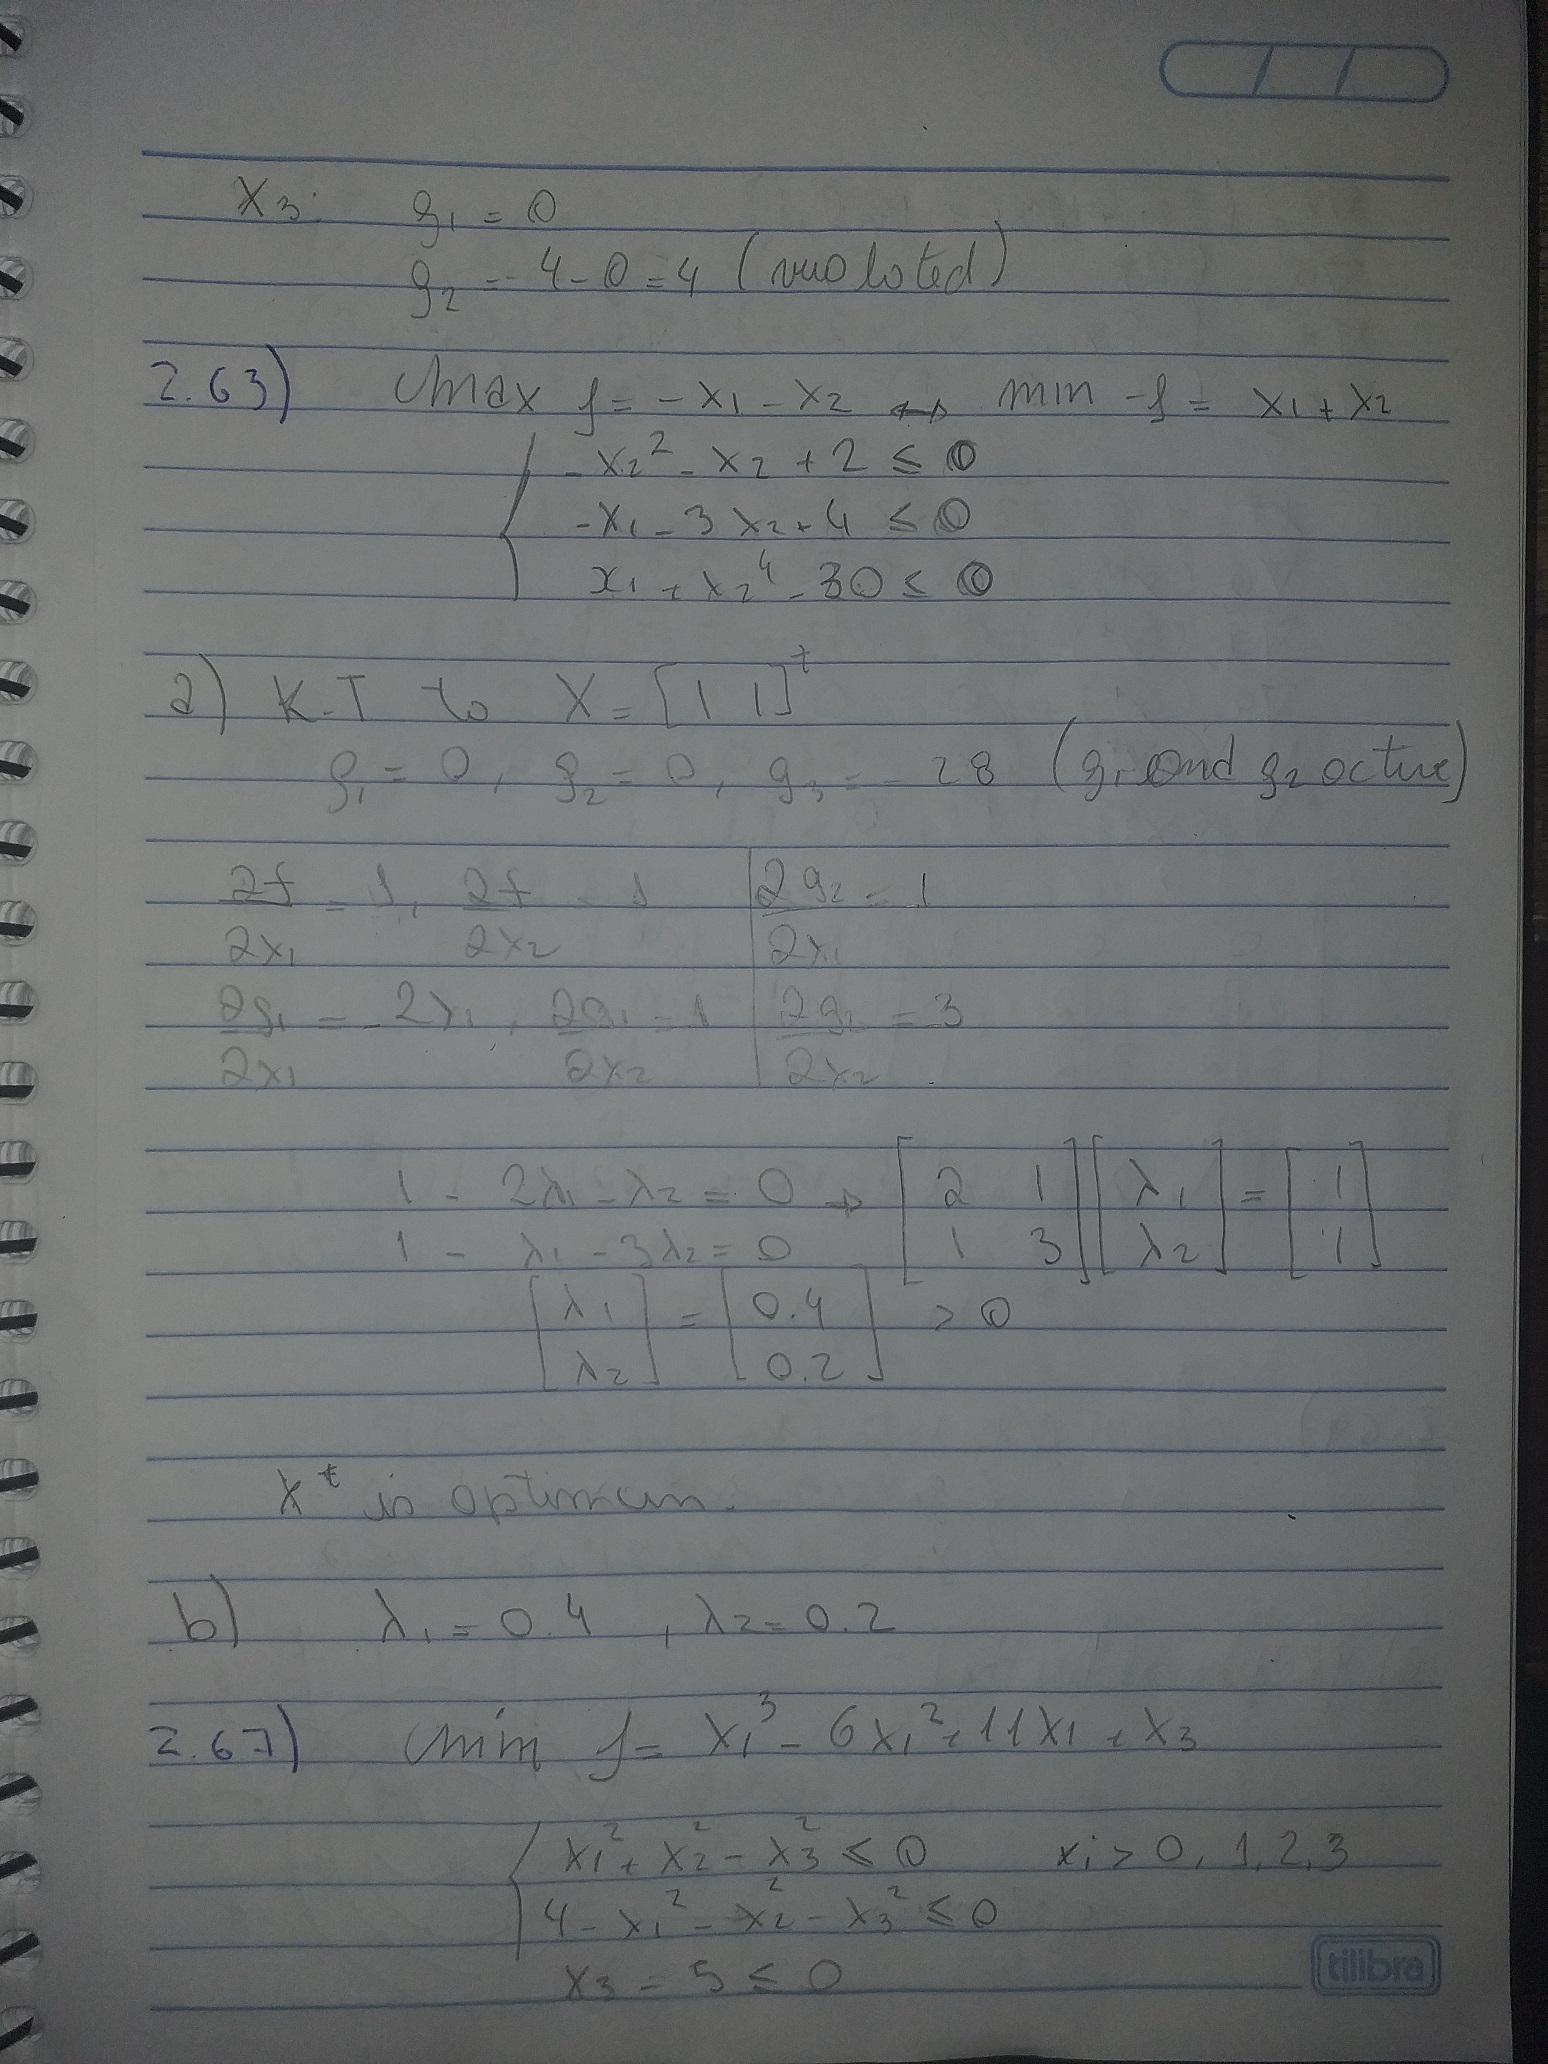 x3: g1 = 0
g2 = 4 - 0 = 4 (violated)
2.63) Max f = -x1 - x2 ↔ min -f = x1 + x2
-x2² - x2 + 2 ≤ 0
-x1 - 3x2 + 4 ≤ 0
x1 + x2⁴ - 30 ≤ 0
a) K-T to X = [1 1]ᵗ
g1 = 0, g2 = 0, g3 = -28 (g1 and g2 active)
∂f/∂x1 = 1, ∂f/∂x2 = 1 | ∂g2/∂x1 = 1
∂g1/∂x1 = -2x1, ∂g1/∂x2 = 1 | ∂g2/∂x2 = 3
1 - 2λ1 - λ2 = 0 → [2 1; 1 3] [λ1; λ2] = [1; 1]
1 - λ1 - 3λ2 = 0
[λ1; λ2] = [0.4; 0.2] > 0
Xᵗ is optimum.
b) λ1 = 0.4, λ2 = 0.2
2.67) min f = x1³ - 6x1² + 11x1 + x3
x1² + x2² - x3² ≤ 0 xi > 0, 1,2,3
4 - x1² - x2² - x3² ≤ 0
x3 - 5 ≤ 0
tilibra